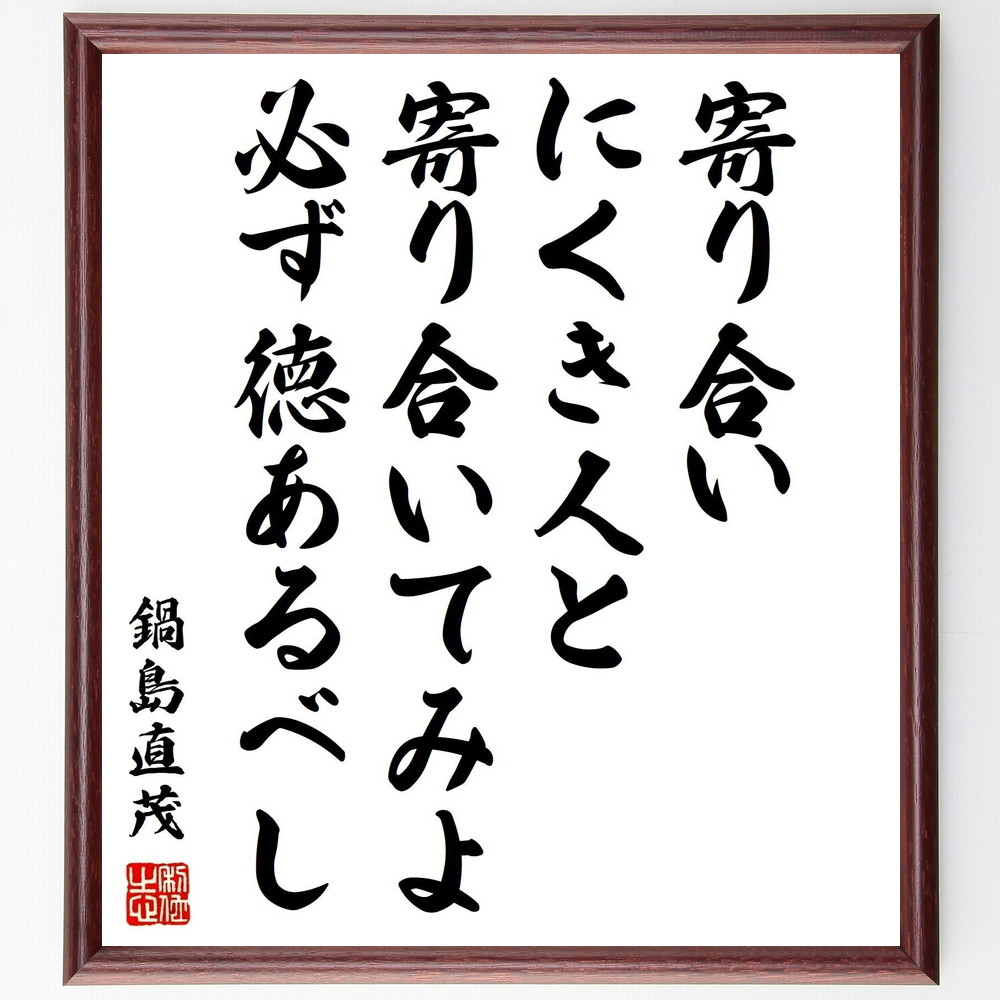 寄り合い
にくき人と
寄り合いてみよ
必ず徳あるべし
鍋島直茂